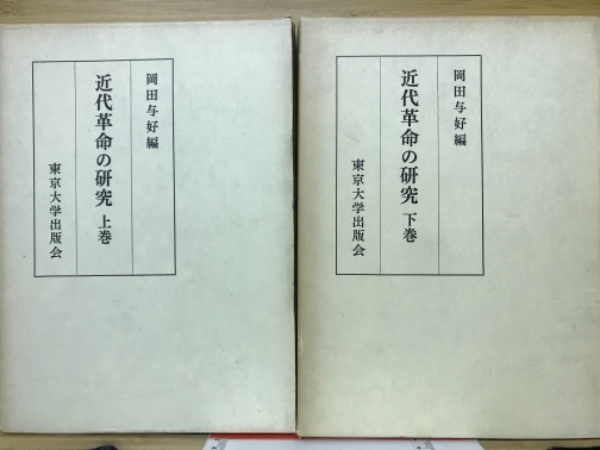 岡田与好編
近代革命の研究 上巻
東京大学出版会
岡田与好編
近代革命の研究 下巻
東京大学出版会